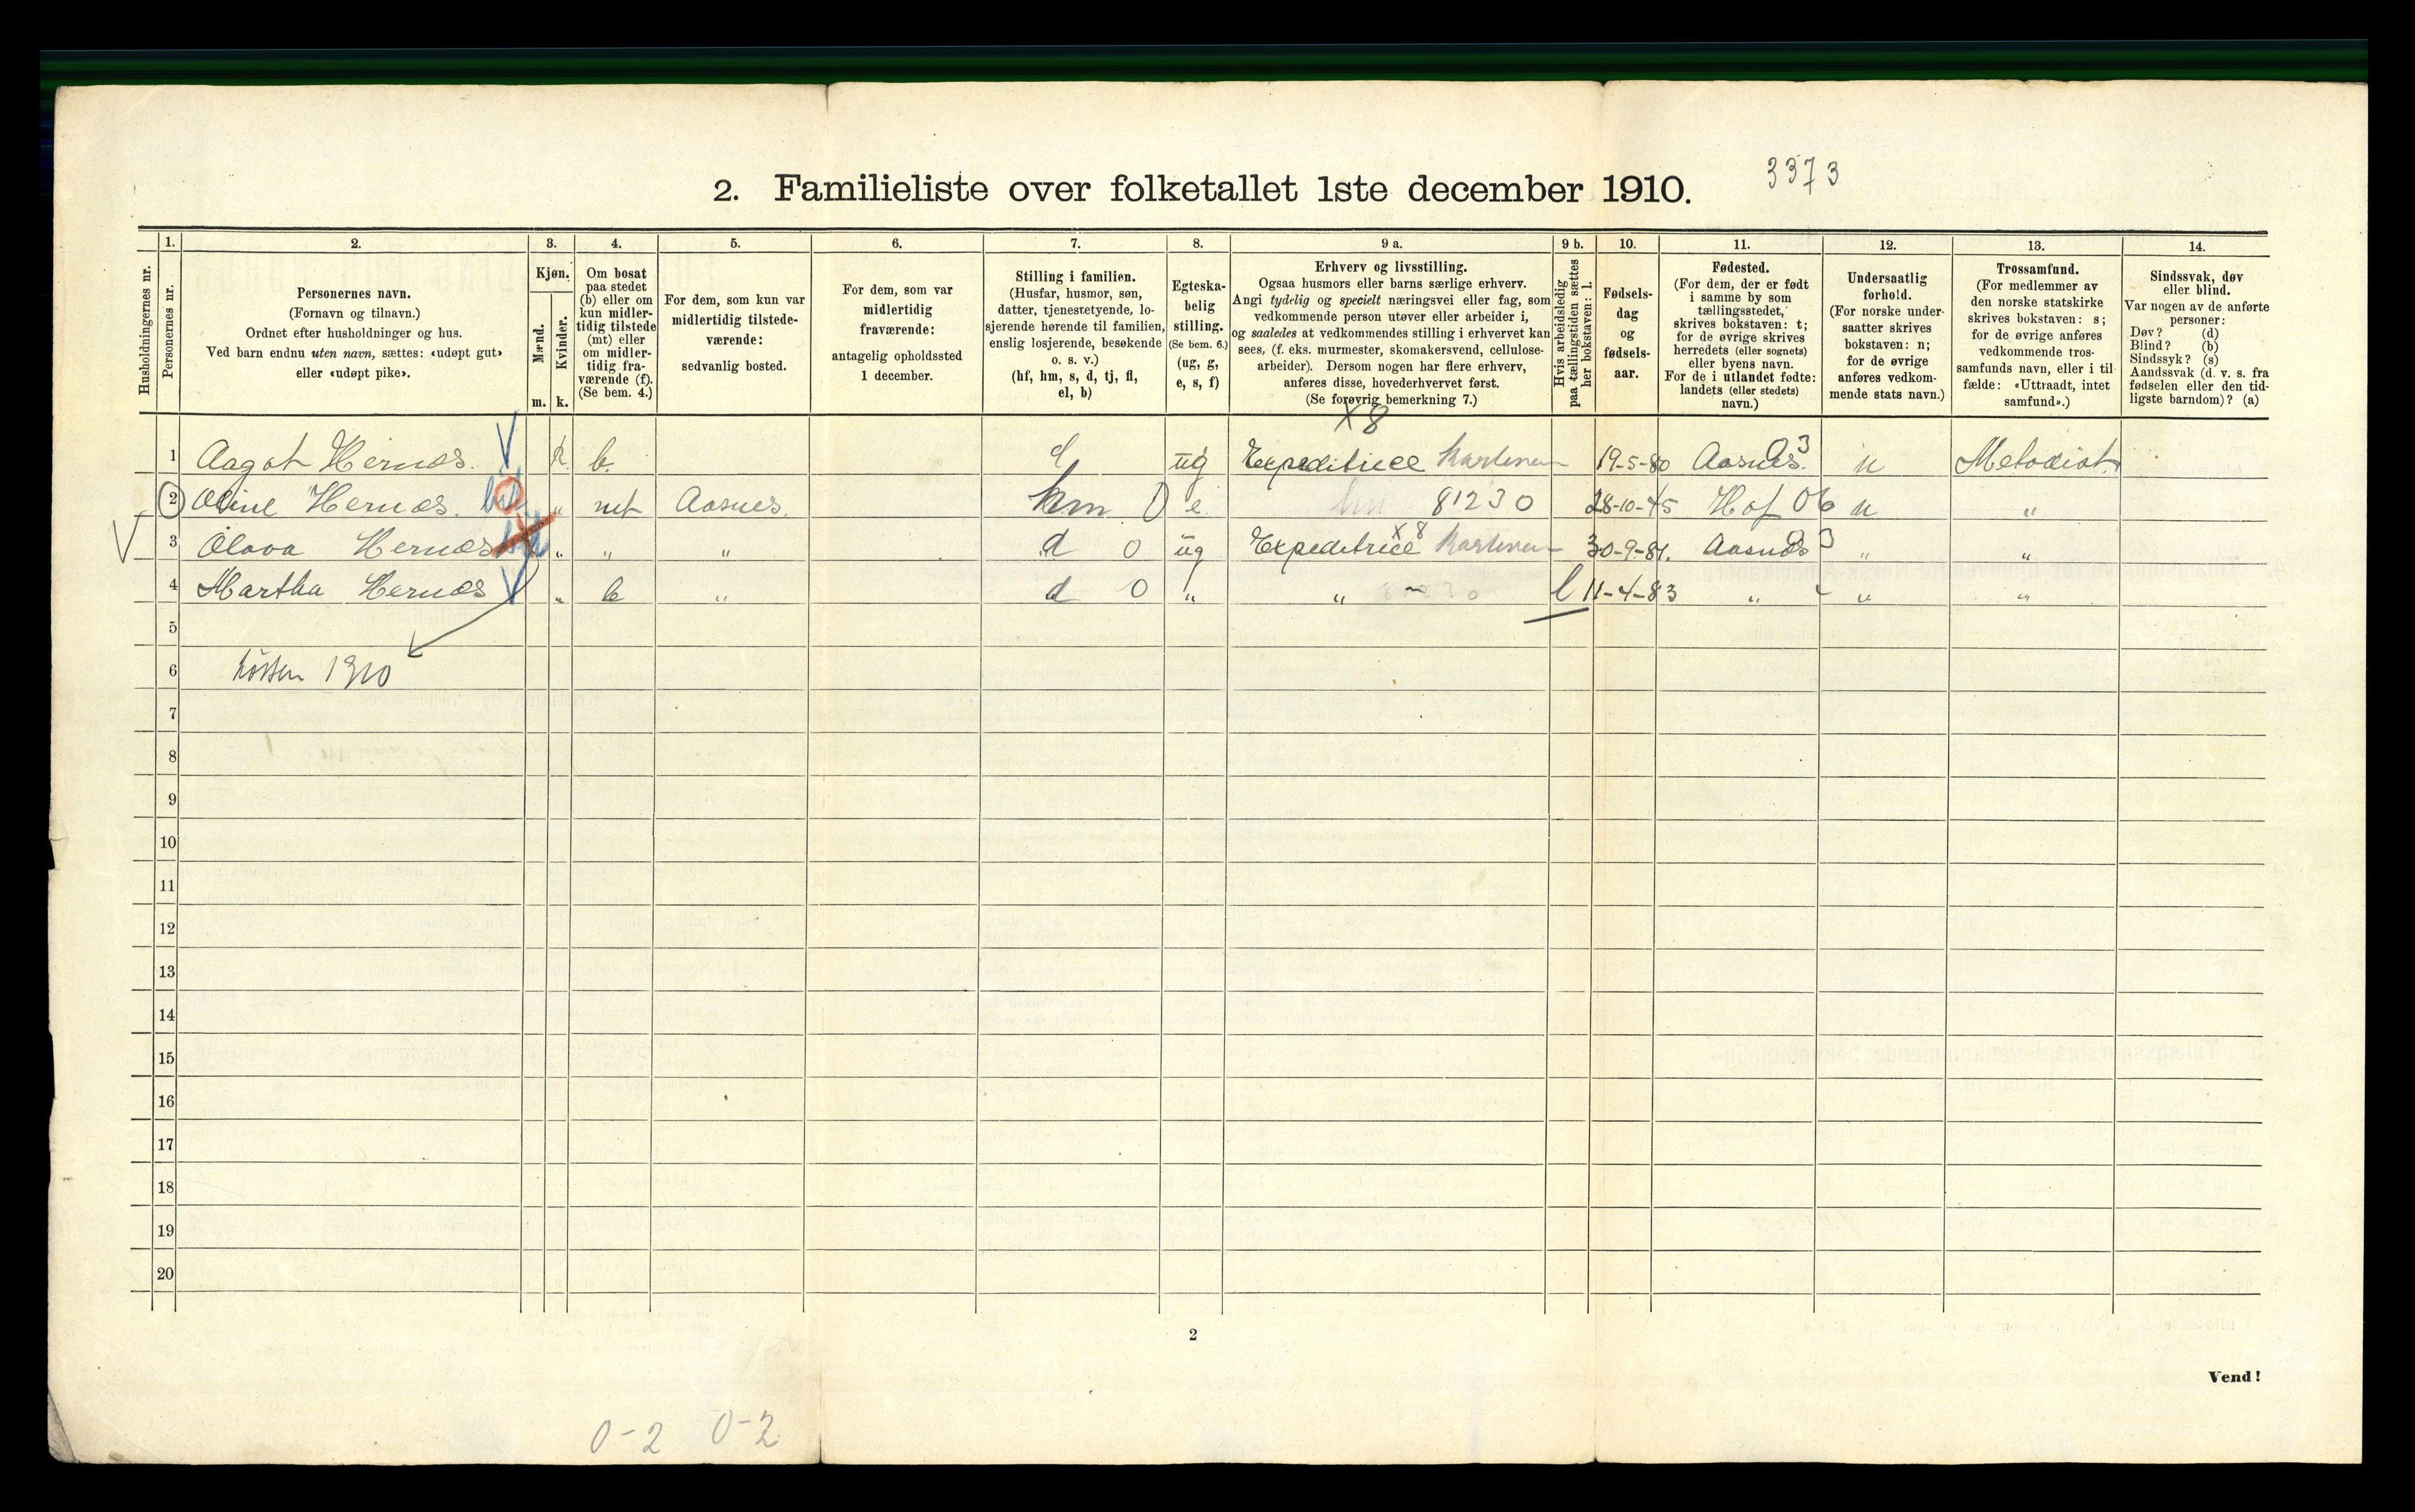 3373
2. Familieliste over folketallet 1ste december 1910.
Husholdningernes nr.
1.
Personernes nr.
2.
Personernes navn.
(Fornavn og tilnavn.)
Ordnet efter husholdninger og hus.
Ved barn endnu uten navn, sættes: «udøpt gut»
eller «udøpt pike».
3.
Kjøn.
Mænd.
Kvinder.
m. k.
4.
Om bosat
paa stedet
(b) eller om
kun midler-
tidig tilstede
(mt) eller
om midler-
tidig fra-
værende (f).
(Se bem. 4.)
5.
For dem, som kun var
midlertidig tilstede-
værende:
sedvanlig bosted.
6.
For dem, som var
midlertidig
fraværende:
antagelig opholdssted
1 december.
7.
Stilling i familien.
(Husfar, husmor, søn,
datter, tjenestetyende, lo-
sjerende hørende til familien,
enslig losjerende, besøkende
o. s. v.)
(hf, hm, s, d, tj, fl,
el, b)
8.
Egteska-
belig
stilling.
(Se bem. 6.)
(ug, g,
e, s, f)
9 a.
Erhverv og livsstilling.
Ogsaa husmors eller barns særlige erhverv.
Angi tydelig og specielt næringsvei eller fag, som
vedkommende person utøver eller arbeider i,
og saaledes at vedkommendes stilling i erhvervet kan
sees, (f. eks. murmester, skomakersvend, cellulose-
arbeider). Dersom nogen har flere erhverv,
anføres disse, hovederhvervet først.
(Se forøvrig bemerkning 7.)
9 b.
Hvis arbeidsledig
paa tællingstiden sættes
her bokstaven: l.
10.
Fødsels-
dag
og
fødsels-
aar.
11.
Fødested.
(For dem, der er født
i samme by som
tællingsstedet,
skrives bokstaven: t;
for de øvrige skrives
herredets (eller sognets)
eller byens navn.
For de i utlandet fødte:
landets (eller stedets)
navn.)
12.
Undersaatlig
forhold.
(For norske under-
saatter skrives
bokstaven: n;
for de øvrige
anføres vedkom-
mende stats navn.)
13.
Trossamfund.
(For medlemmer av
den norske statskirke
skrives bokstaven: s;
for de øvrige anføres
vedkommende tros-
samfunds navn, eller i til-
fælde: «Uttraadt, intet
samfund».)
14.
Sindssvak, døv
eller blind.
Var nogen av de anførte
personer:
Døv? (d)
Blind? (b)
Sindssyk? (s)
Aandssvak (d. v. s. fra
fødselen eller den tid-
ligste barndom)? (a)
X8
1 Aagot Hernæs. k. b. ug Expeditrice 19-5-80 Aasnes. 3 n Metodist
2 Oline Hernæs. „ mt Aasnes. hm 0 e. 81230 28-10-45 Hof 06 n „
3 Olava Hernæs „ „ „ d 0 ug Expeditrice X8 30-9-81. Aasnæs 3 „ „
4 Martha Hernæs „ b „ d 0 „ „ l 11-4-83 „ „ „
5
6 høsten 1910
7
8
9
10
11
12
13
14
15
16
17
18
19
20
2
Vend!
0-2 0-2